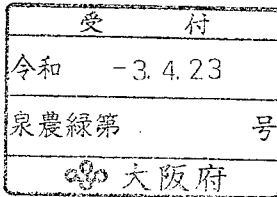 受付
令和 -3.4.23
泉農緑第 号
大阪府